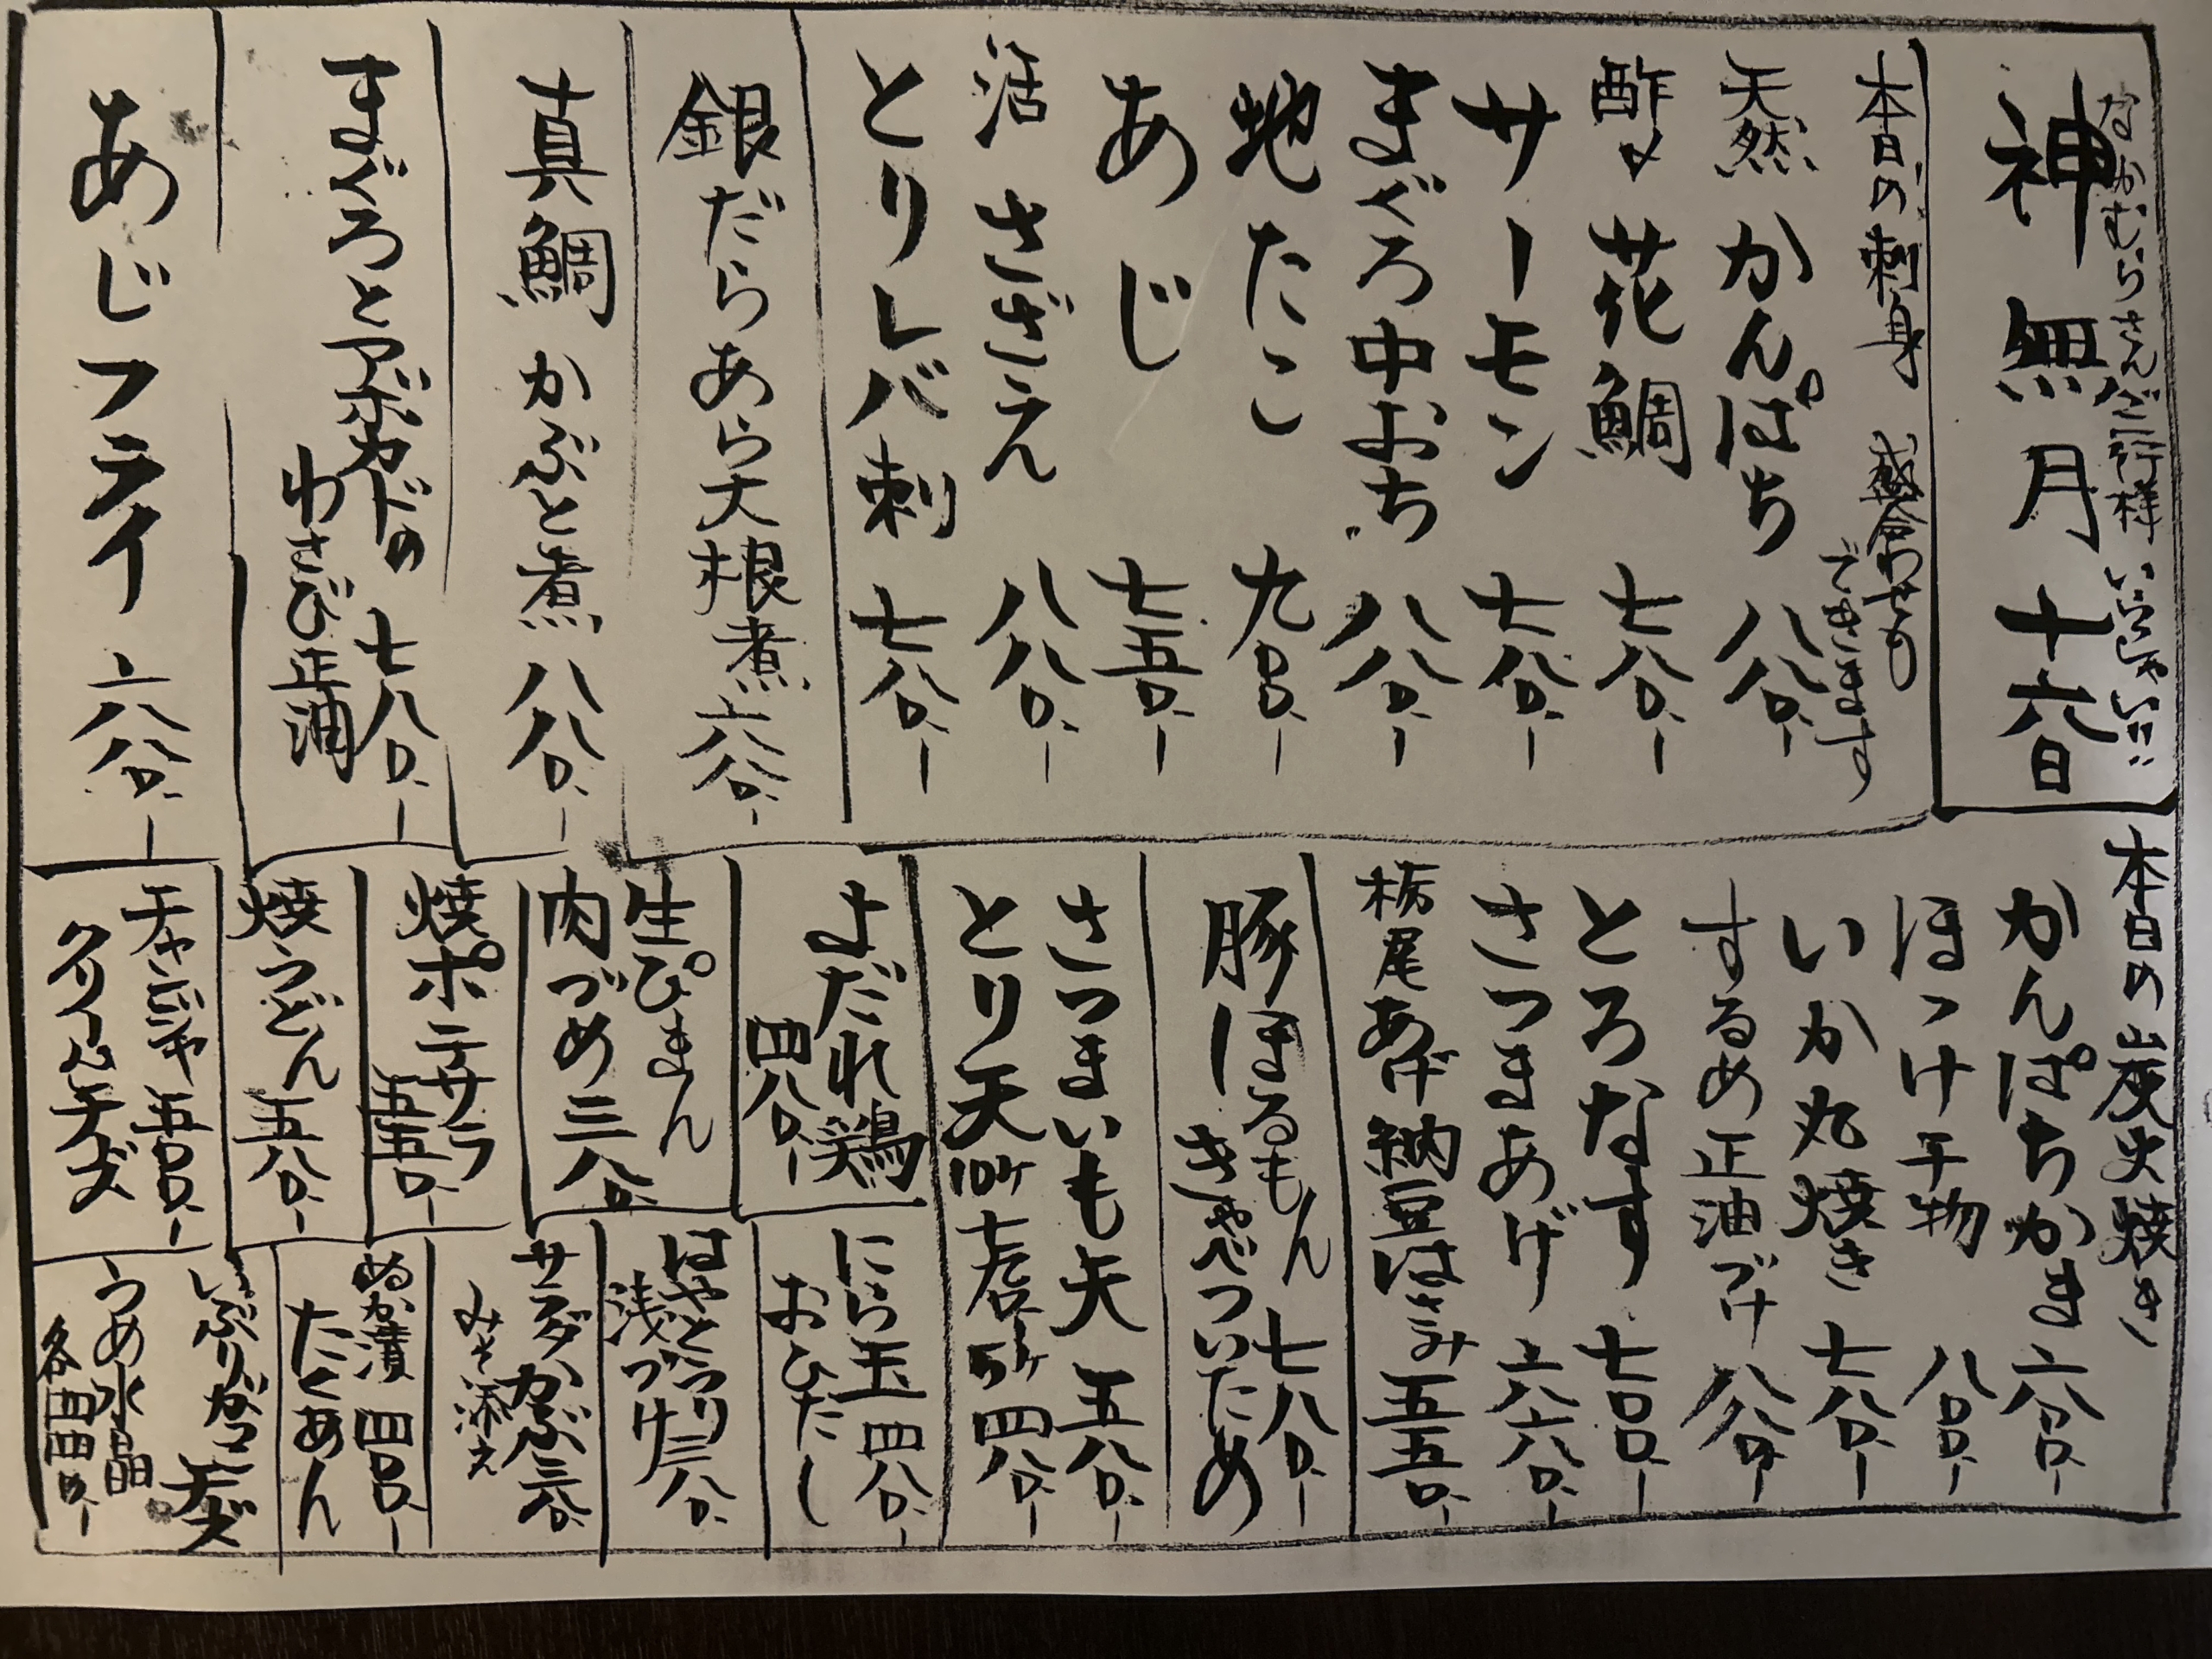 なかむらさんご一行様 いらっしゃい!!
神無月十六日
本日の刺身 盛合わせも
できます
天然 かんぱち 八八〇.ー
酢〆 花鯛 七八〇.ー
サーモン 七八〇.ー
まぐろ中おち 八八〇.ー
地たこ 九〇〇.ー
あじ 七五〇.ー
活 さざえ 八八〇.ー
とりレバ刺 七八〇.ー
銀だらあら大根煮 六八〇.ー
真鯛 かぶと煮 八八〇.ー
まぐろとアボカドの 七八〇.ー
わさび正油
あじフライ 六八〇.ー
本日の炭火焼き
かんぱちかま 六八〇.ー
ほっけ干物 八〇〇.ー
いか丸焼き 七八〇.ー
するめ正油づけ 八八〇.ー
とろなす 七〇〇.ー
さつまあげ 六八〇.ー
栃尾あげ納豆はさみ 五五〇.ー
豚ほるもん 七八〇.ー
きゃべついため
さつまいも天 五八〇.ー
とり天 10ケ 七八〇.ー 5ケ 四八〇.ー
よだれ鶏
四八〇.ー
生ぴまん
肉づめ 三八〇.
焼ポテサラ
五五〇.ー
焼うどん 五八〇.ー
チャンジャ 五〇〇.ー
クリームチーズ
にら玉 四八〇.ー
おひたし
はやとうり
浅づけ 三八〇.
サラダかぶ 三八〇.
みそ添え
ぬか漬 四〇〇.ー
たくあん
いぶりがっこチーズ
うめ水晶
各四四〇.ー